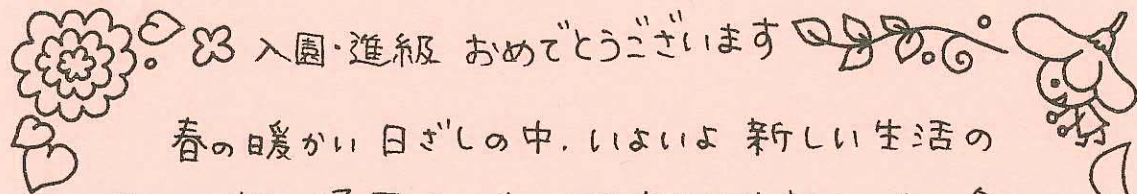 入園・進級 おめでとうございます
春の暖かい 日ざしの中、いよいよ 新しい生活の